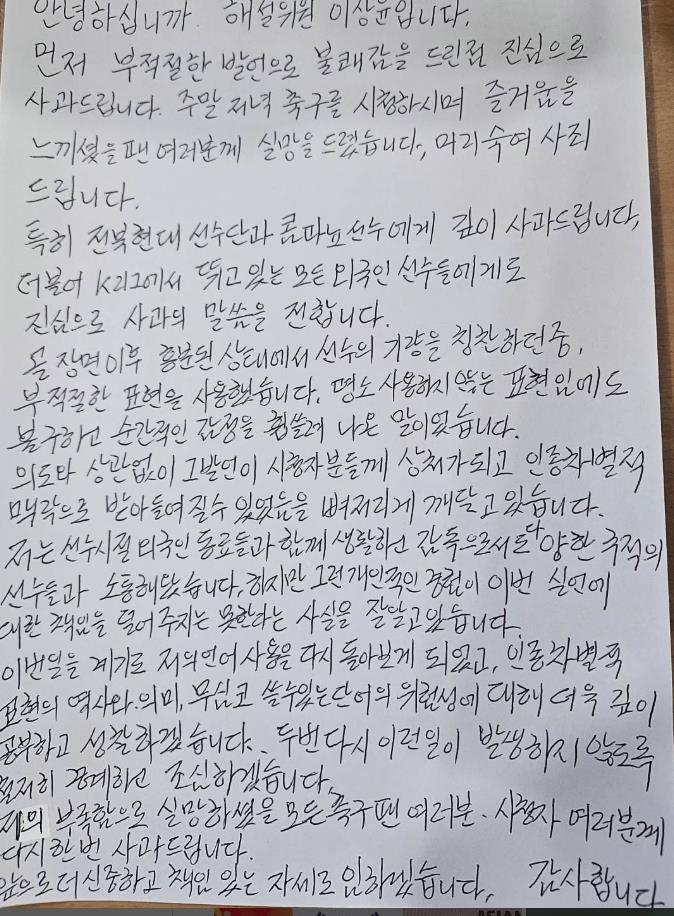 안녕하십니까. 해설위원 이상윤입니다.
먼저 부적절한 발언으로 불쾌감을 드린점 진심으로
사과드립니다. 주말 저녁 축구를 시청하시며 즐거움을
느끼셨을 팬 여러분께 실망을 드렸습니다, 머리숙여 사죄
드립니다.
특히 전북현대 선수단과 콤파뇨선수에게 깊이 사과드립니다,
더불어 K리그에서 뛰고 있는 모든 외국인 선수들에게도
진심으로 사과의 말씀을 전합니다.
골 장면이후 흥분된 상태에서 선수의 기량을 칭찬하던중,
부적절한 표현을 사용했습니다, 평소 사용하지 않는 표현임에도
불구하고 순간적인 감정을 휩쓸려 나온 말이었습니다.
의도와 상관없이 그발언이 시청자분들께 상처가되고 인종차별적
맥락으로 받아들여질수 있었음을 뼈저리게 깨닫고 있습니다.
저는 선수시절 외국인 동료들과 함께 생활하고 감독으로서도 다양한 국적의
선수들과 소통해왔습니다, 하지만 그런개인적인 경험이 이번 실언에
대한 책임을 덜어주지는 못한다는 사실을 잘알고있습니다.
이번일을 계기로 저의언어사용을 다시 돌아보게 되었고, 인종차별적
표현의 역사와 의미, 무심코 쓸수있는단어의 위험성에 대해 더욱 깊이
공부하고 성찰하겠습니다. 두번다시 이런일이 발생하지 않도록
철저히 경계하고 조심하겠습니다,
저의 부족함으로 실망하셨을 모든축구팬 여러분. 시청자 여러분께
다시한번 사과드립니다.
앞으로 더신중하고 책임 있는 자세로 임하겠습니다, 감사합니다
ASIAN